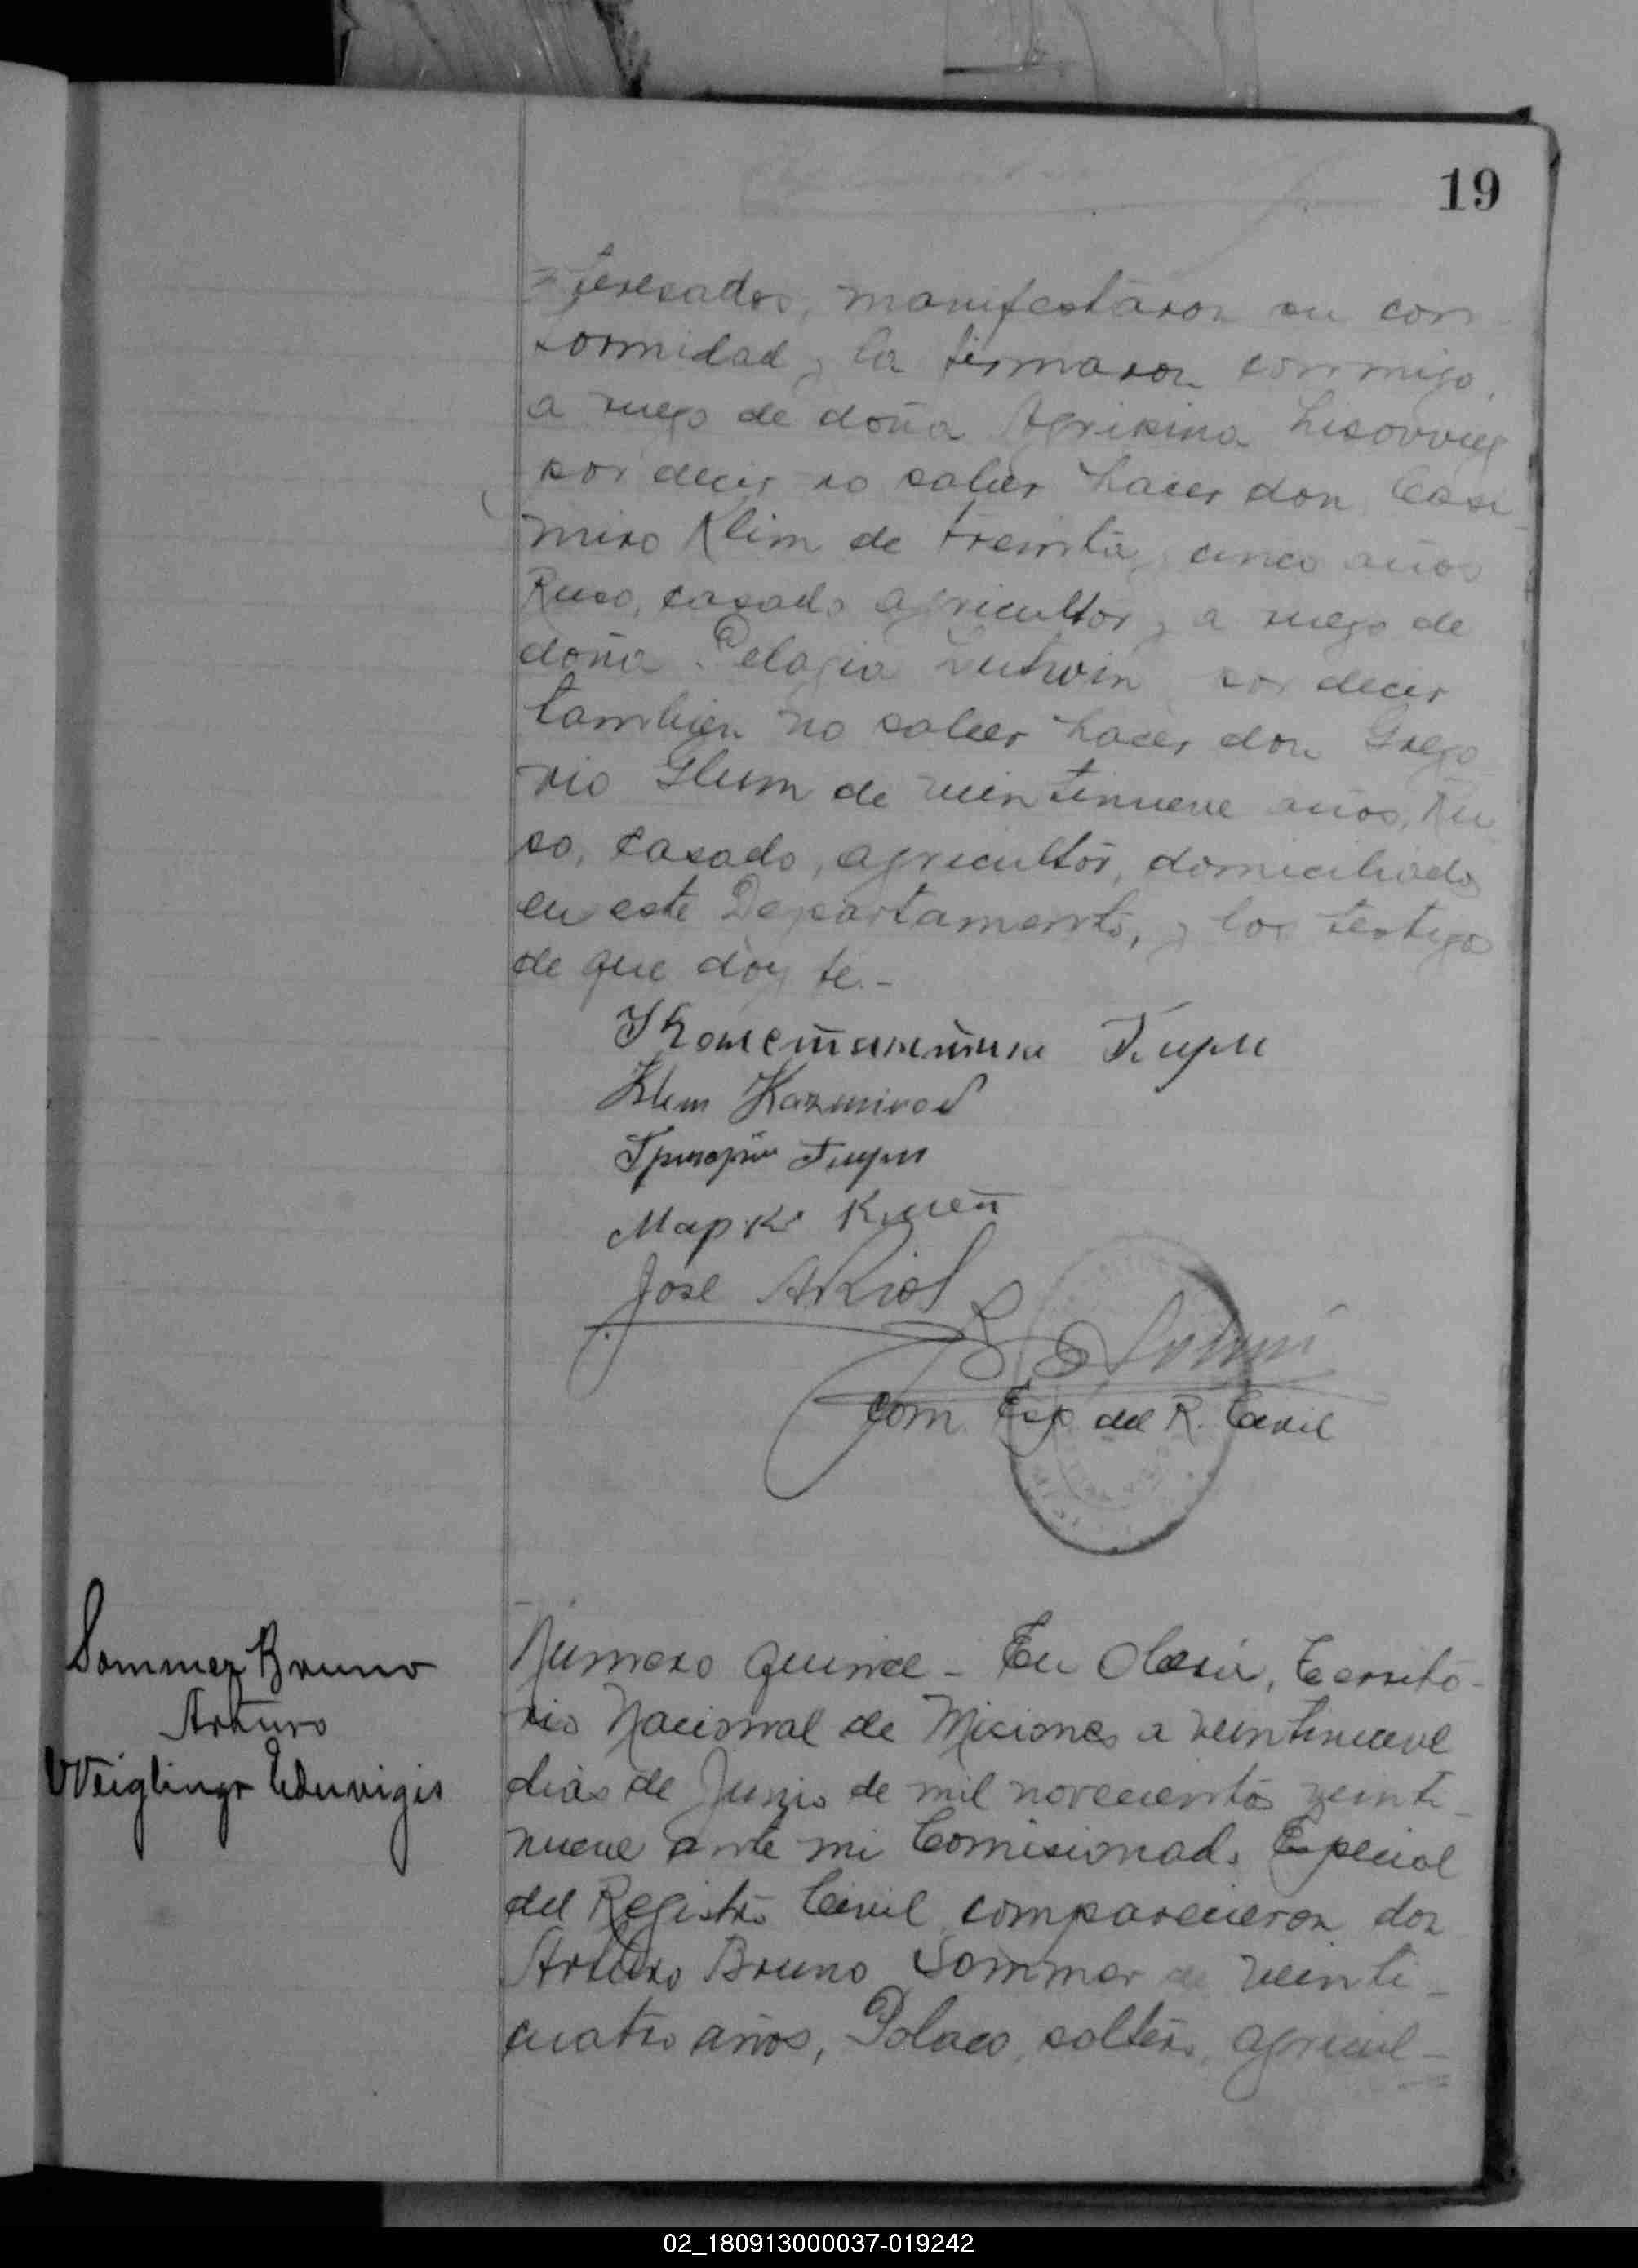 19
=teresados, manifestaron su con-
formidad y la firmaron conmigo,
a ruego de doña Agripina
por decir no saber hacer don Casi-
miro Klim de treinta y cinco años
Ruso, casado agricultor y a ruego de
doña Pelagia por decir
tambien no saber hacer don Grego
rio Glum de veintinueve años, Ru
so, casado, agricultor, domiciliados
en este Departamento, y los testigos
de que doy fe.-
Константин
Klim
Григорий
Марко
Jose
Com. Esp. del R. Civil
Sommer Bruno
Arturo
Weiglingr Eduvigis
Número quince - En Oberá, Territo-
rio Nacional de Misiones a veintinueve
dias de Junio de mil novecientos veinti-
nueve ante mi Comisionado Especial
del Registro Civil comparecieron don
Arturo Bruno Sommer de veinti-
cuatro años, Polaco, soltero, agricul-
02_180913000037-019242